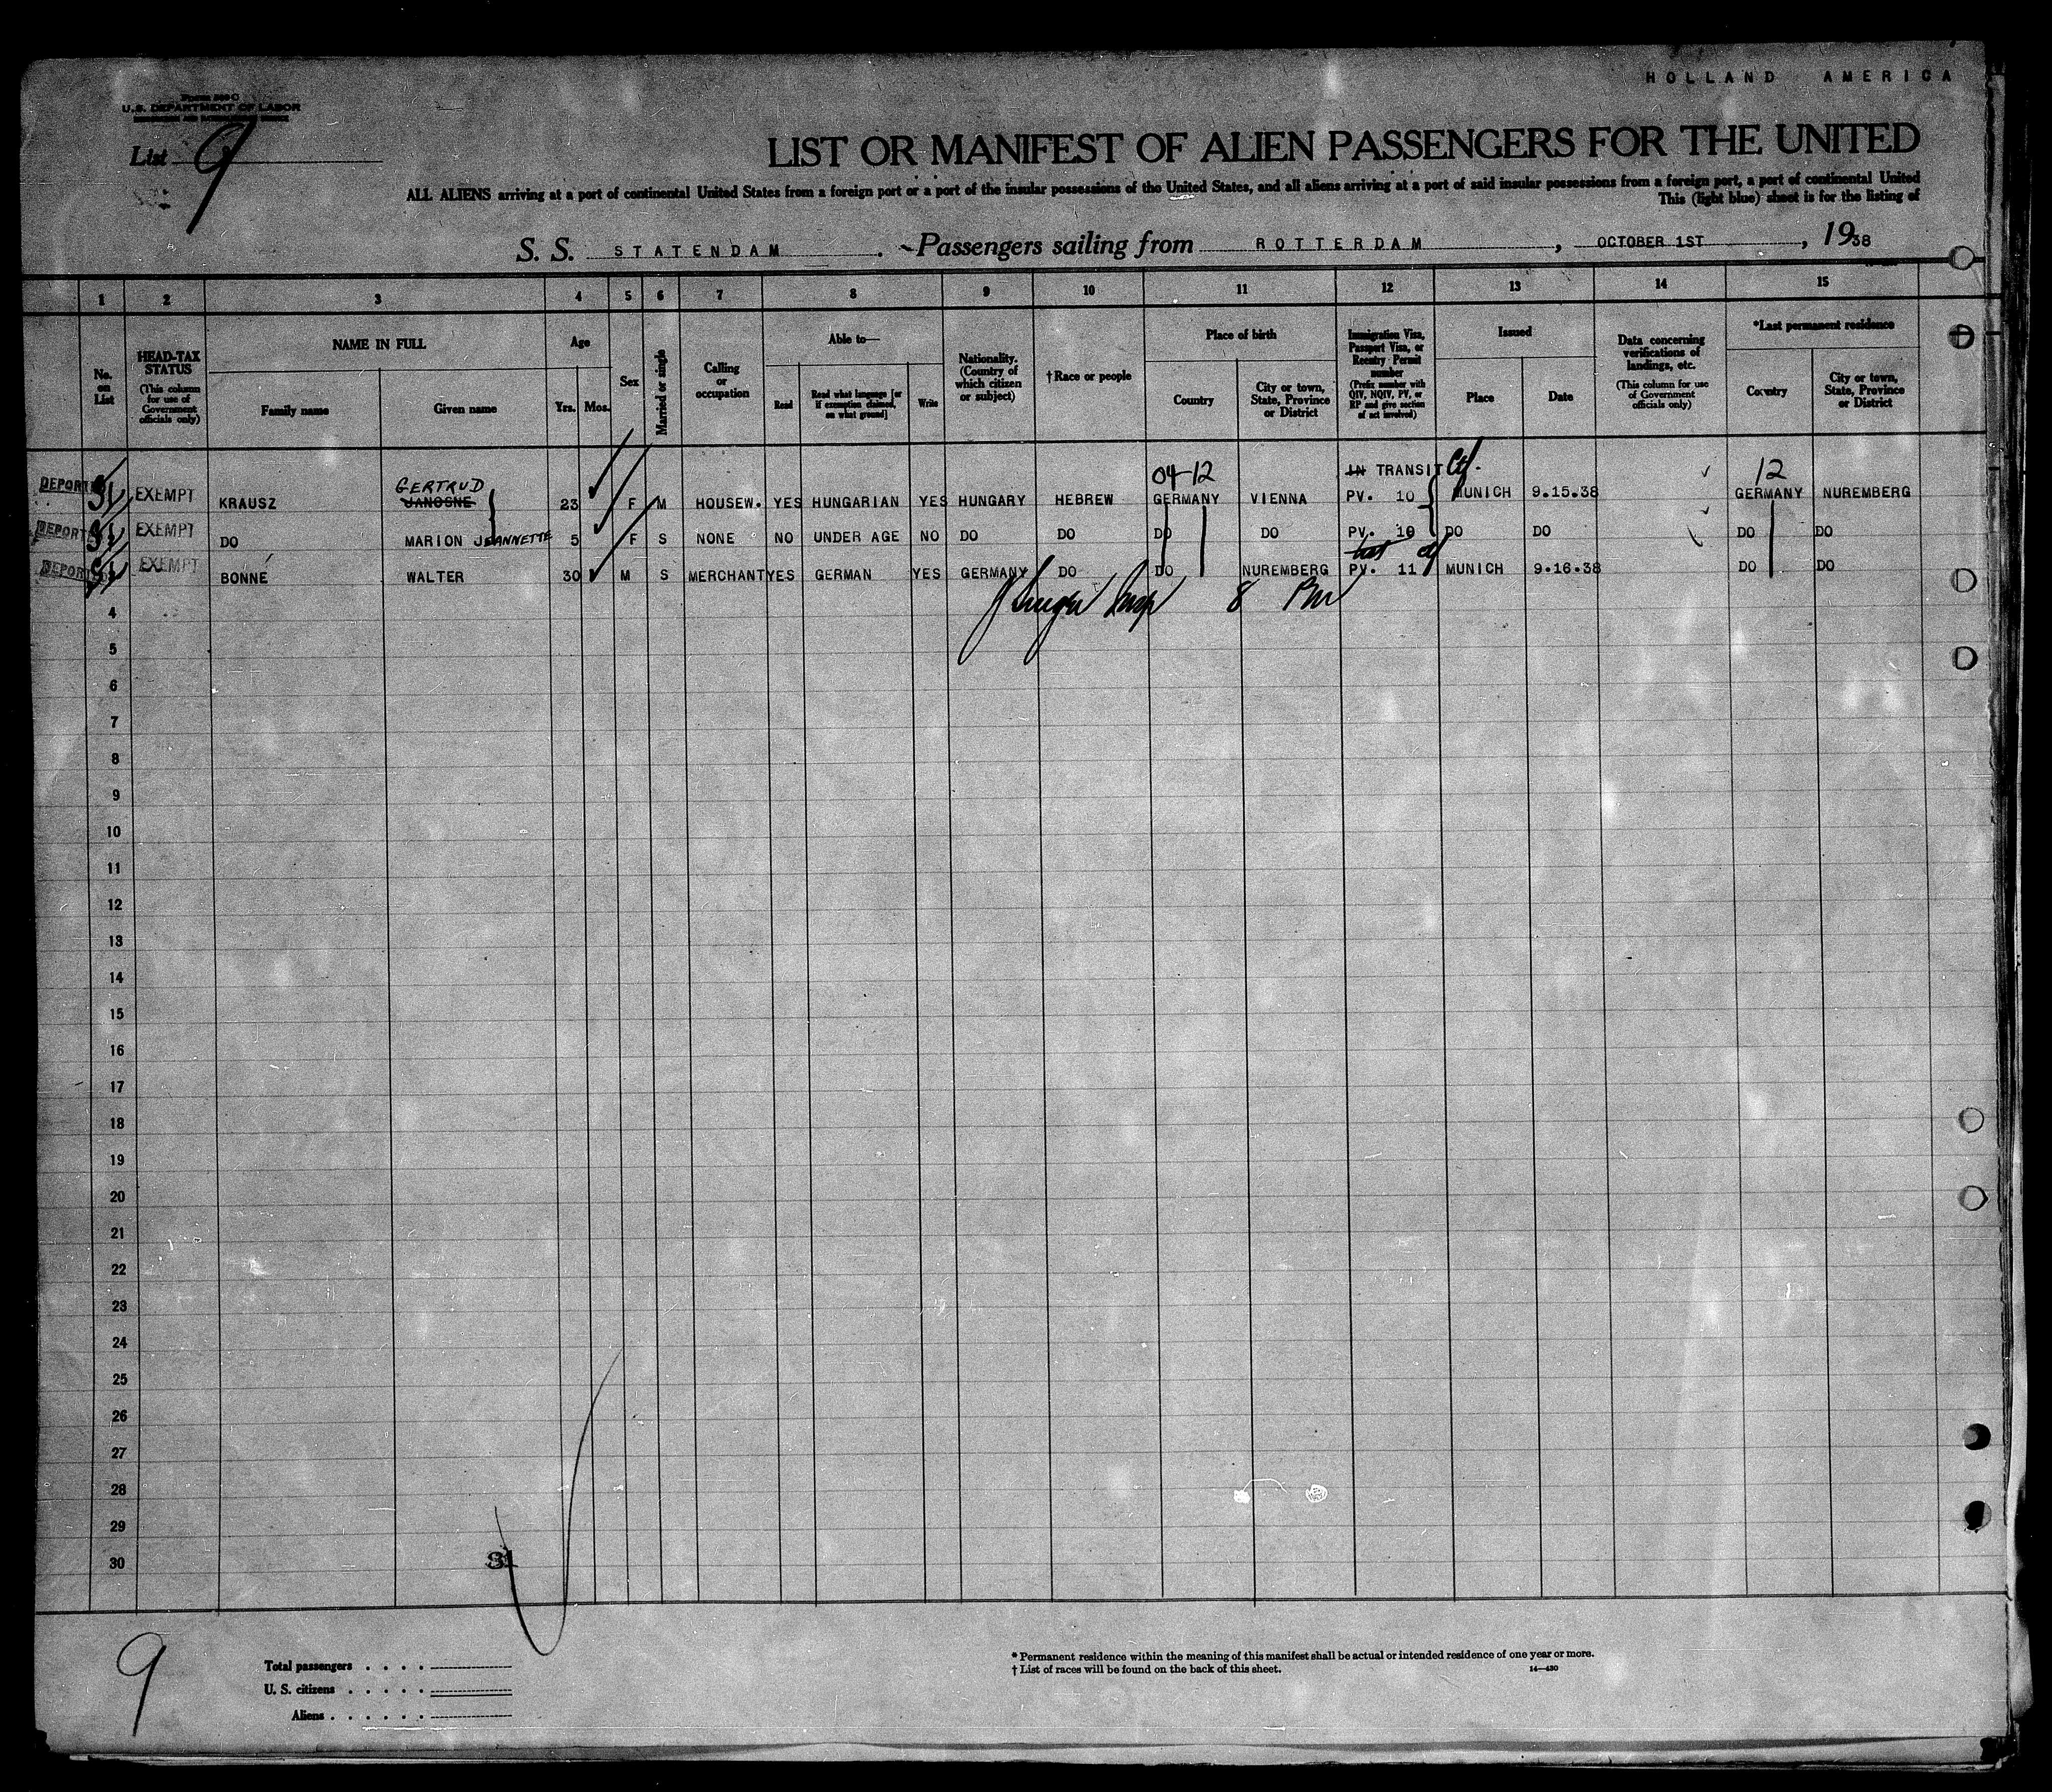 HOLLAND AMERICA
Form 500 C
U.S. DEPARTMENT OF LABOR
IMMIGRATION AND NATURALIZATION SERVICE
List 9
LIST OR MANIFEST OF ALIEN PASSENGERS FOR THE UNITED
ALL ALIENS arriving at a port of continental United States from a foreign port or a port of the insular possessions of the United States, and all aliens arriving at a port of said insular possessions from a foreign port, a port of continental United
This (light blue) sheet is for the listing of
S. S. STATENDAM. Passengers sailing from ROTTERDAM, OCTOBER 1ST, 1938
1 2 3 4 5 6 7 8 9 10 11 12 13 14 15
No. on List
HEAD-TAX STATUS
(This column for use of Government officials only)
NAME IN FULL
Family name
Given name
Age
Yrs. Mos.
Sex
Married or single
Calling or occupation
Able to—
Read
Read what language [or if exemption claimed, on what ground]
Write
Nationality. (Country of which citizen or subject)
†Race or people
Place of birth
Country
City or town, State, Province or District
Immigration Visa, Passport Visa, or Reentry Permit number
(Prefix number with QIV, NQIV, PV, or RP and give section of act involved)
Issued
Place
Date
Data concerning verifications of landings, etc.
(This column for use of Government officials only)
*Last permanent residence
Country
City or town, State, Province or District
GERTRUD 04-12 IN TRANSIT Ctf. 12
DEPORTED EXEMPT KRAUSZ JANOSNE 23 F M HOUSEW. YES HUNGARIAN YES HUNGARY HEBREW GERMANY VIENNA PV. 10 MUNICH 9.15.38 GERMANY NUREMBERG
DEPORTED EXEMPT DO MARION JEANNETTE 5 F S NONE NO UNDER AGE NO DO DO DO DO PV. 10 DO DO DO DO
DEPORTED EXEMPT BONNÉ WALTER 30 M S MERCHANT YES GERMAN YES GERMANY DO DO NUREMBERG PV. 11 MUNICH 9.16.38 DO DO
8 PM
4
5
6
7
8
9
10
11
12
13
14
15
16
17
18
19
20
21
22
23
24
25
26
27
28
29
30
31
9
Total passengers . . . .
U. S. citizens . . . . .
Aliens . . . . . .
* Permanent residence within the meaning of this manifest shall be actual or intended residence of one year or more.
† List of races will be found on the back of this sheet.
14—430